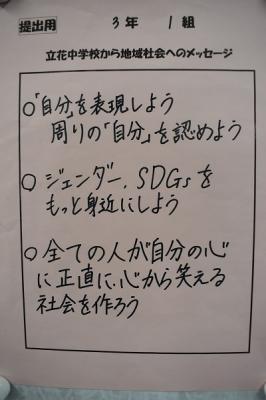 提出用 3年 1組
立花中学校から地域社会へのメッセージ
○「自分」を表現しよう
周りの「自分」を認めよう
○ ジェンダー、SDGsを
もっと身近にしよう
○ 全ての人が自分の心
に正直に、心から笑える
社会を作ろう